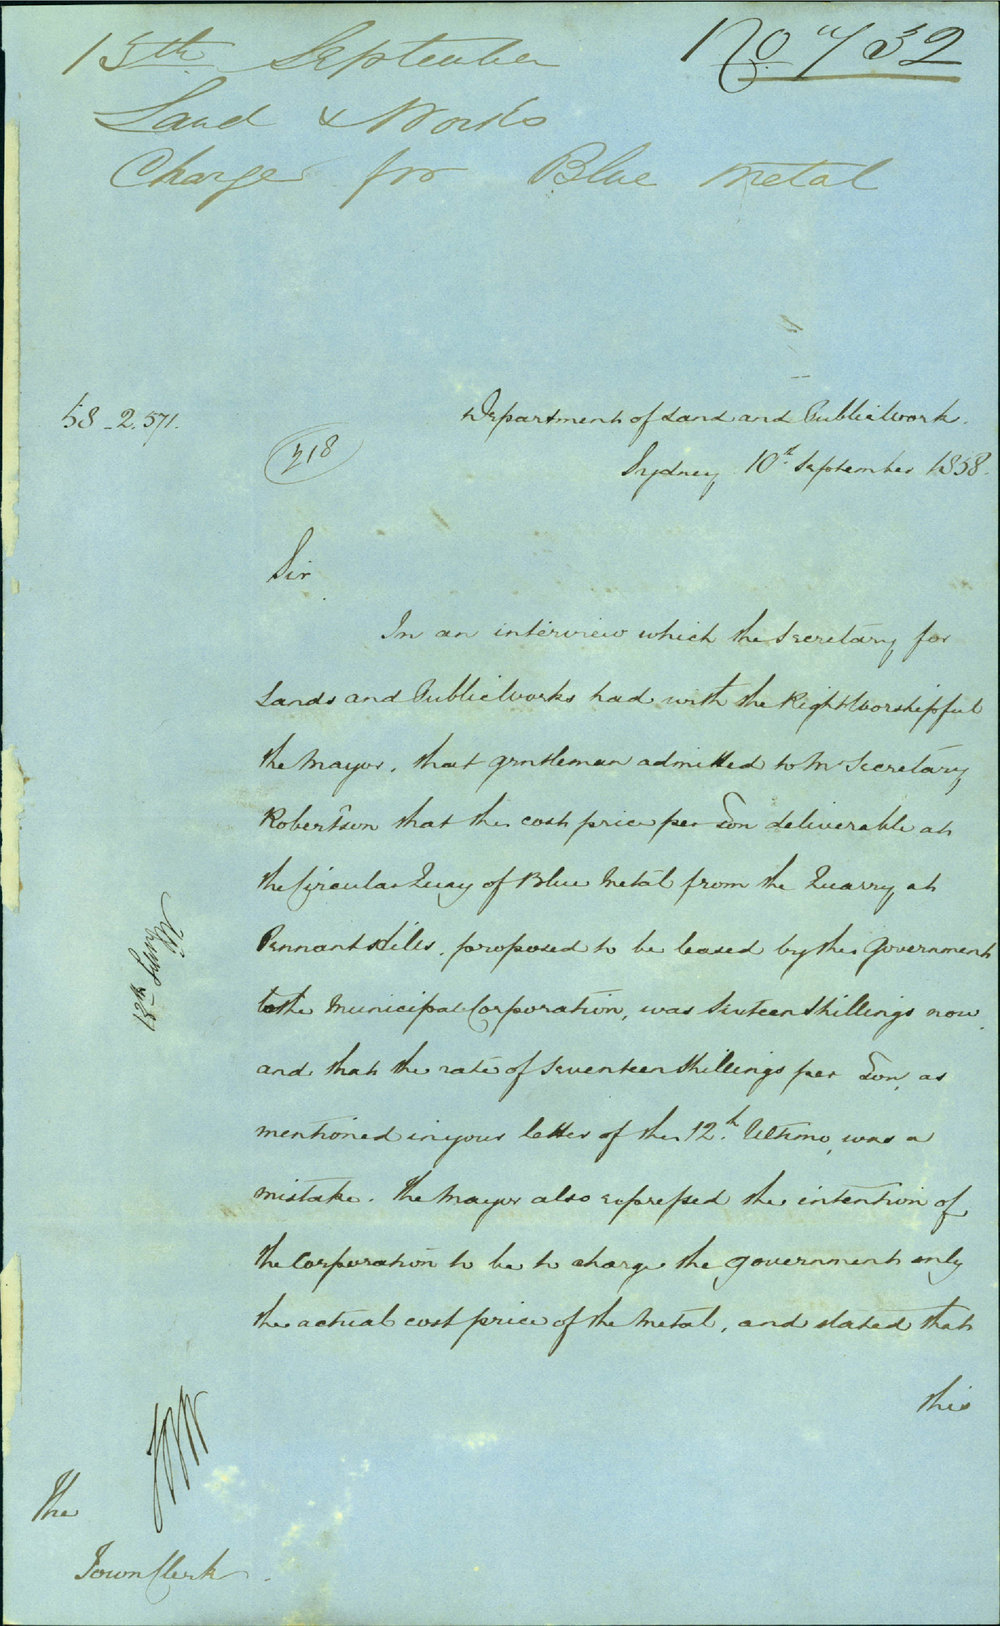 13th September No 732
Land & Works
Charges for Blue Metal
58_2.571.
Department of Land and Public Work.
218
Sydney 10th September 1858.
Sir
In an interview which the Secretary for
Lands and Public Works had with the Right Worshipful
the Mayor, that gentleman admitted to Mr Secretary
Robertson that the cost price per Ton deliverable at
the Circular Quay of Blue Metal from the Quarry at
Pennant Hills, proposed to be leased by the Government
to the Municipal Corporation, was Sixteen Shillings now,
and that the rate of Seventeen Shillings per Ton, as
mentioned in your letter of the 12th Ultimo, was a
mistake. The Mayor also expressed the intention of
the Corporation to be to charge the Government only
the actual cost price of the Metal, and stated that
this
The
Town Clerk